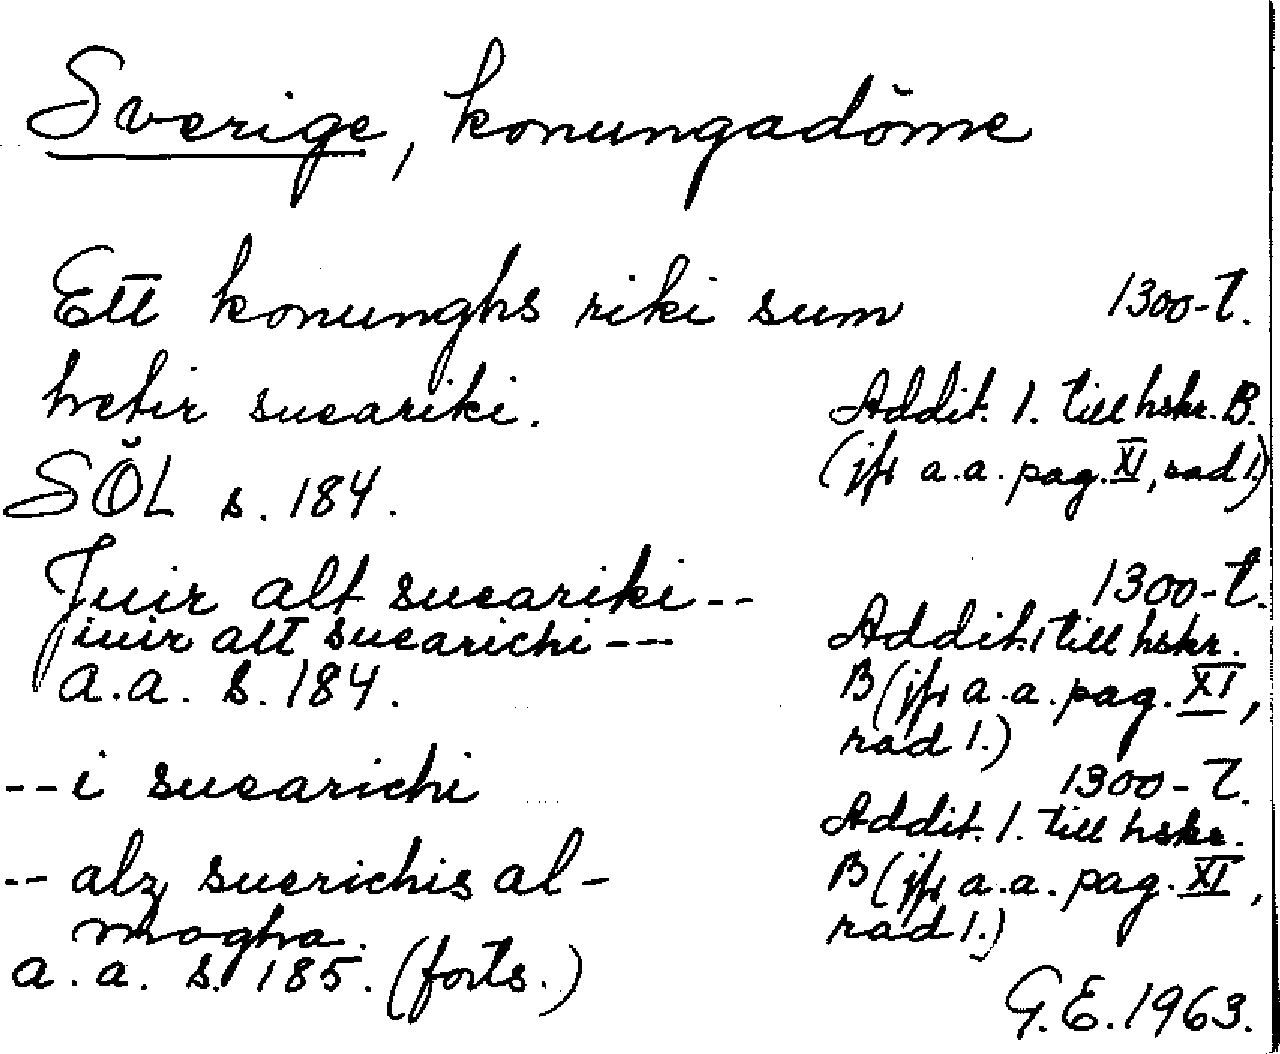 Sverige, konungadöme
Ett konunghs riki sum
hetir sueariki.
SÖL s. 184.
1300-t.
Addit. 1. till hskr. B.
(jfr a.a. pag. XI, rad 1.)
Juir alt sueariki--
iuir alt suearichi---
a.a. s. 184.
1300-t.
Addit. 1 till hskr.
B (jfr a.a. pag. XI,
rad 1.)
--i suearichi
1300-t.
Addit. 1. till hskr.
-- alz suerichis al-
mogha.
a.a. s. 185. (forts.)
B (jfr a.a. pag. XI,
rad 1.)
G.E. 1963.